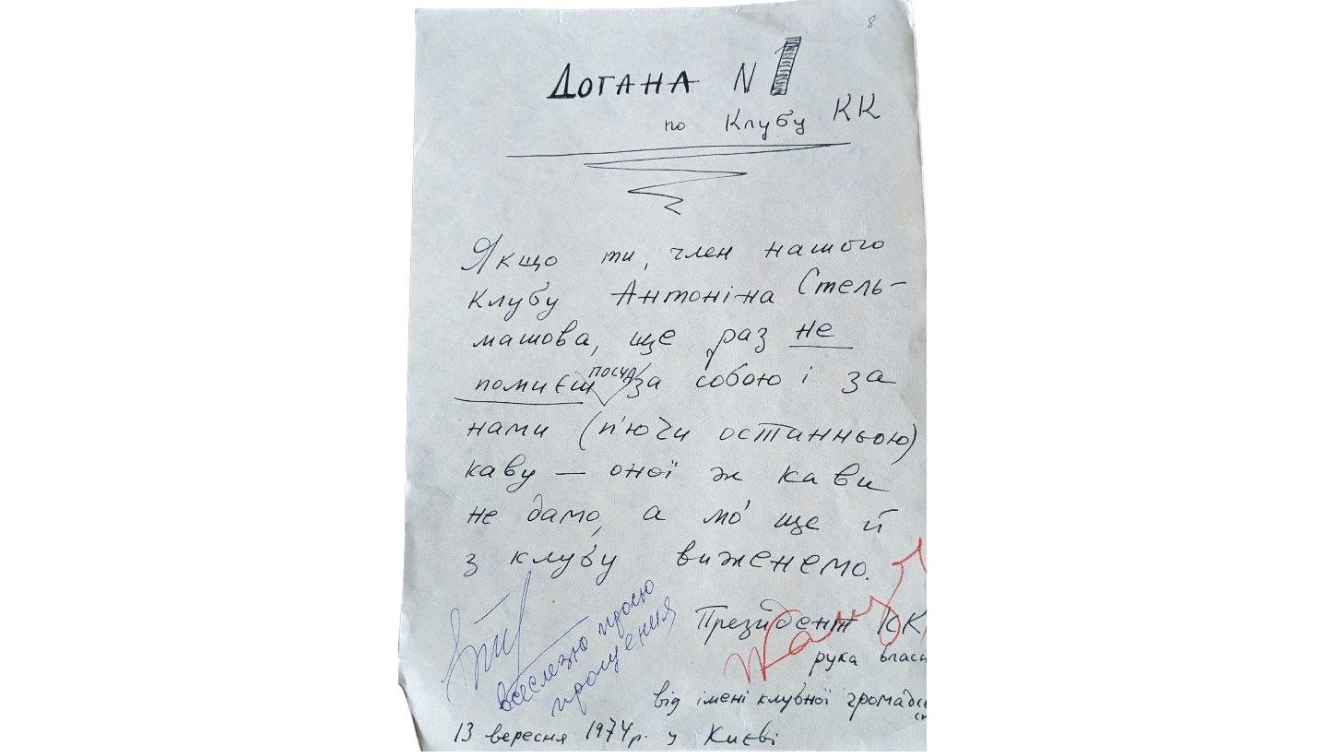 8
Догана N 1
по Клубу КК
Якщо ти, член нашого
клубу Антоніна Стель-
машова, ще раз не
помиєш посуд за собою і за
нами (п'ючи останньою)
каву — оної ж кави
не дамо, а мо' ще й
з клубу виженемо.
Президент КК
рука власн
від імені клубної громадс
всеслезно прошу
прощения
13 вересня 1974р. у Києві